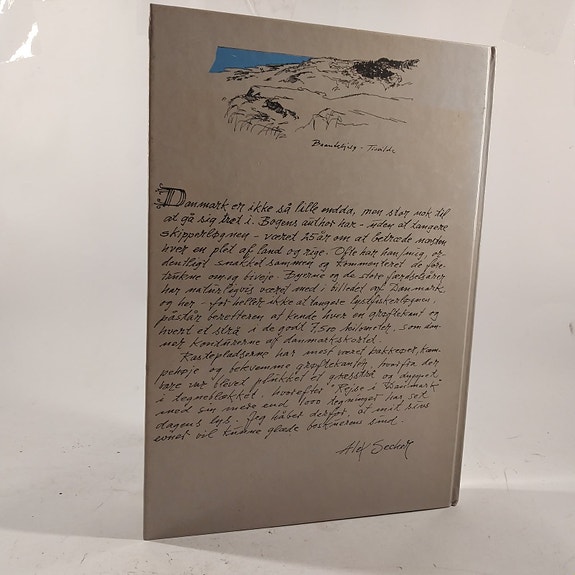 Brandebjerg - Tisvilde
Danmark er ikke så lille endda, men stor nok til
at gå sig træt i. Bogens author har - uden at tangere
skipperløgnen - været 25 år om at betræde næsten
hver en plet af land og rige. Ofte har han/mig, or-
dentligt snakket sammen og kommenteret de fore-
trukne om og biveje. Byerne og de store færdselsårer
har naturligvis været med i billedet af Danmark
og her - for heller ikke at tangere lystfiskerløgnen,
påstår beretteren at kende hver en grøftekant og
hvert et strå i de godt 7.500 kilometer, som dan-
ner konturerne af danmarkskortet.
Rastepladserne har mest været bakkeøer, kæm-
pehøje og bekvemme grøftekanter, hvorfra der
bare var blevet plukket et græsstrå og dyppet
i tegneblækket, hvorefter "Rejse i Danmark"
med sin mere end 1000 tegninger har set
dagens lys. Jeg håber derfor, at mit sivs
evner vil kunne glæde beskuerens sind.
Alex Secher